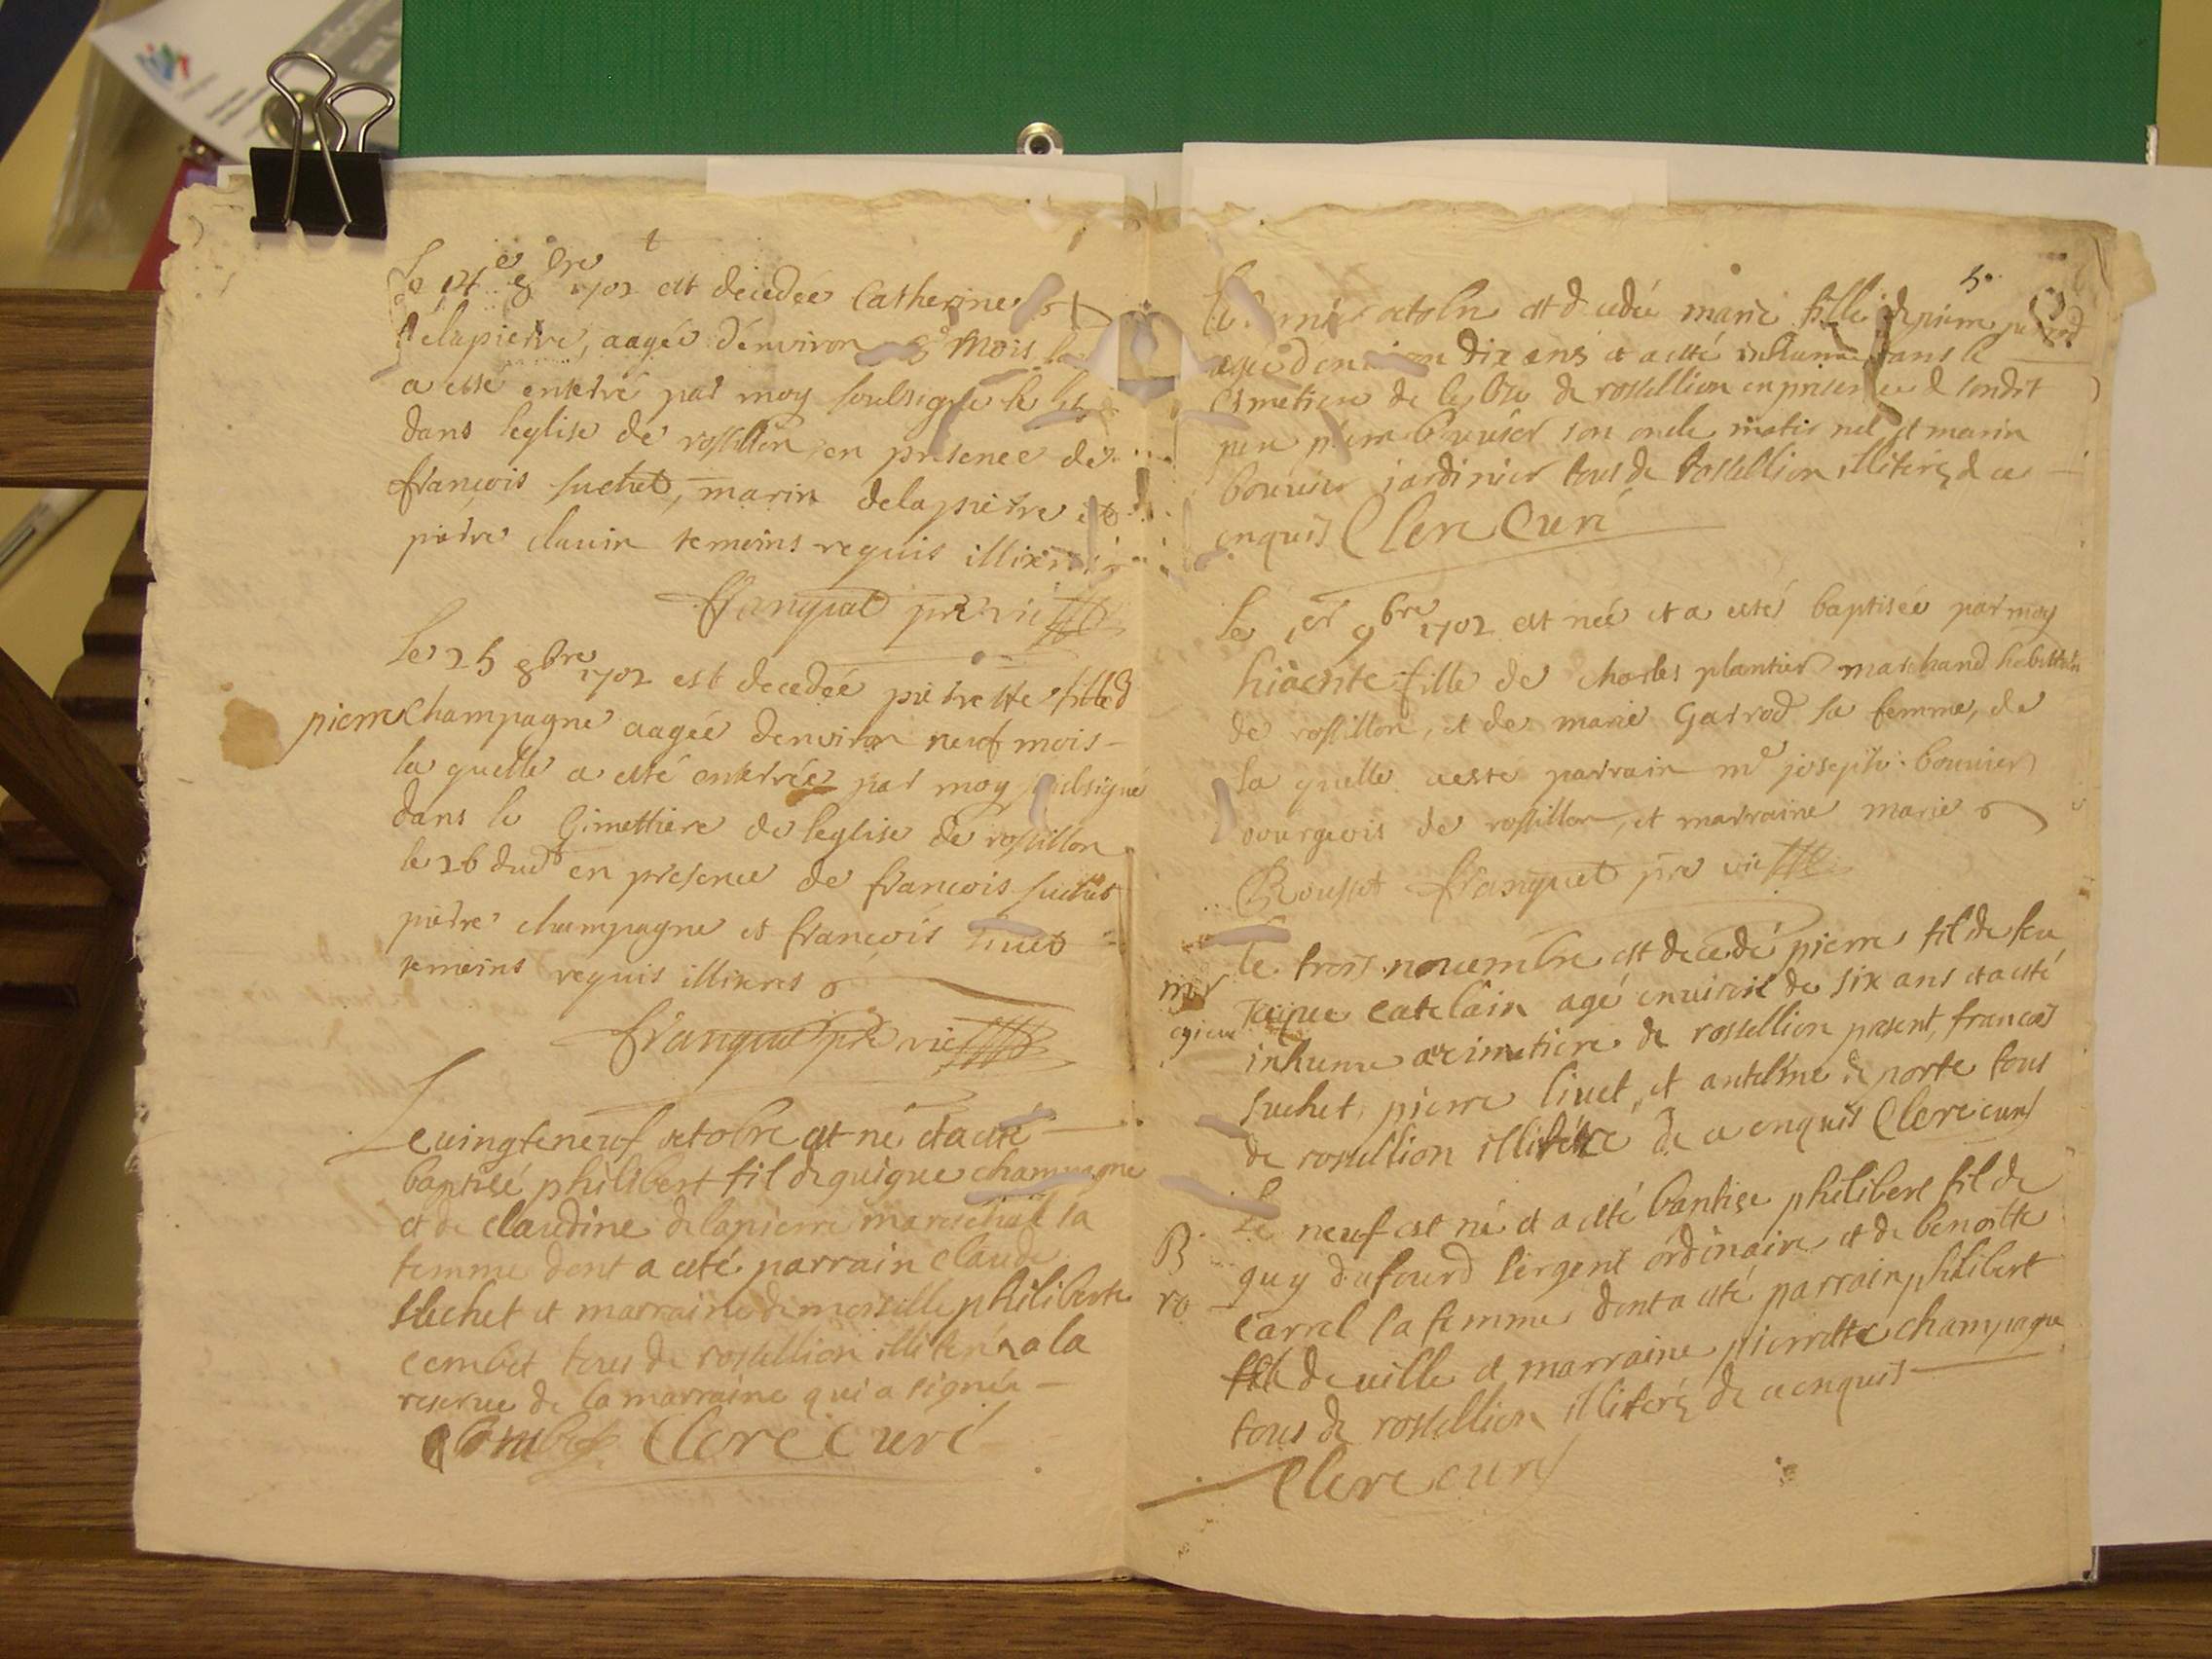 Le 14e 8bre 1702 est decedée Catherine
Delapierre, aagée d'environ 8 mois la
a esté enterré par moy soubsigné le
dans leglise de rossillon en presence de
françois suchet, marin delapierre et
pierre clauin temoins requis illiteres
franquet pre vic
Le 25 8bre 1702 est decedée pierrette fille d
pierre Champagne aagée denviron neuf mois
la quelle a esté enterrée par moy soubsigné
dans le Cimettiere de leglise de rossillon
le 26 dud en presence de françois suchet
pierre champagne et françois liuet
temoins requis illiteres
franquet pre vic
Le uingteneuf octobre est né et a esté
baptisé philibert fil de guigue champagne
et de claudine delapierre mareschal sa
femme dont a esté parrain claude
suchet et marraine demoiselle philiberte
combet tous de rossellion illiterés a la
reserue de la marraine qui a signée
Combet Clerc Curé
5.
Le octobre est decedée marie fille de pierre
agée denuiron dix ans et a esté inhumé dans le
cimetiere de leglise de rossellion en presence de sondit
pere pierre bouuier son oncle maternel et marin
bouuier jardinier tous de rossellion illiterés de ce
enquis Clerc Curé
Le 1er 9bre 1702 est née et a esté baptisée par moy
hiacinte fille de charles plantier marchand habittan
de rossillon, et de marie Garrod sa femme, de
la quelle a esté parrain mre joseph bouuier
bourgeois de rossillon, et marraine marie
Rousset franquet pre vic
Le trois nouembre est decedé pierre fil de feu
mor Jaque catelain agé enuiron de six ans et a esté
inhume au cimetiere de rossellion present, francois
suchet, pierre liuet, et antelme de porte tous
de rossellion illitere de ce enquis Clerc curé
Le neuf est né et a esté baptise philibert fil de
B guy dufourd sergent ordinaire et de benoitte
ro carrel sa femme dont a esté parrain philibert
de uille et marraine pierrette champagne
tous de rossellion illiterés de ce enquis
Clerc curé